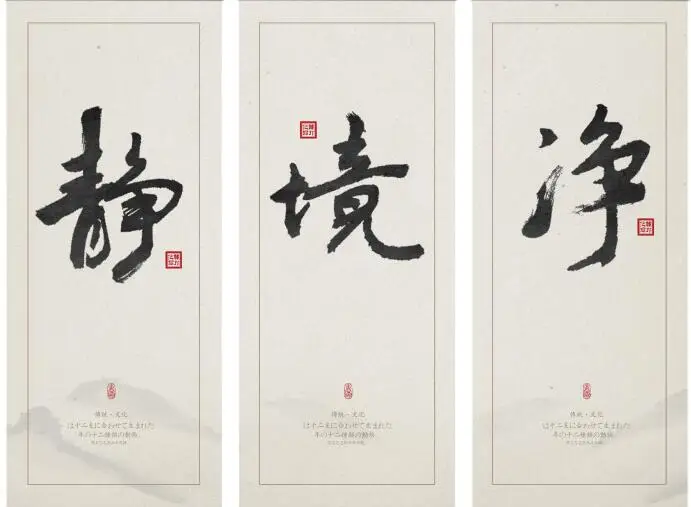 静
傳統·文化
は十二支に合わせて生まれた
年の十二種類の動物。
境
傳統·文化
は十二支に合わせて生まれた
年の十二種類の動物。
净
傳統·文化
は十二支に合わせて生まれた
年の十二種類の動物。